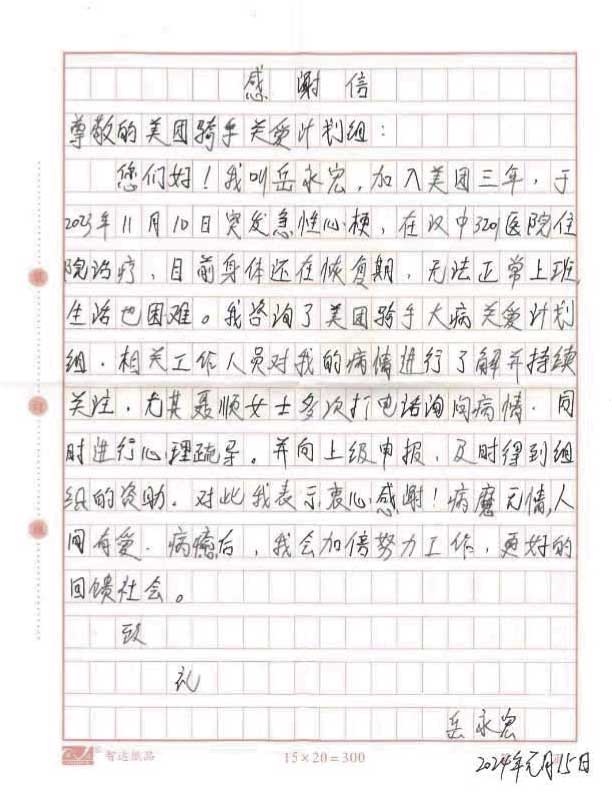 感谢信
尊敬的美团骑手关爱计划组：
您们好！我叫岳永宏，加入美团三年，于
2023年11月10日突发急性心梗，在汉中3201医院住
院治疗，目前身体还在恢复期，无法正常上班，
生活也困难。我咨询了美团骑手大病关爱计划
组．相关工作人员对我的病情进行了解并持续
关注．尤其聂顺女士多次打电话询问病情．同
时进行心理疏导。并向上级申报，及时得到组
织的资助．对此我表示衷心感谢！病魔无情，人
间有爱．病癒后，我会加倍努力工作，更好的
回馈社会。
致
礼
岳永宏
2024年元月15日
智达纸品
15×20=300